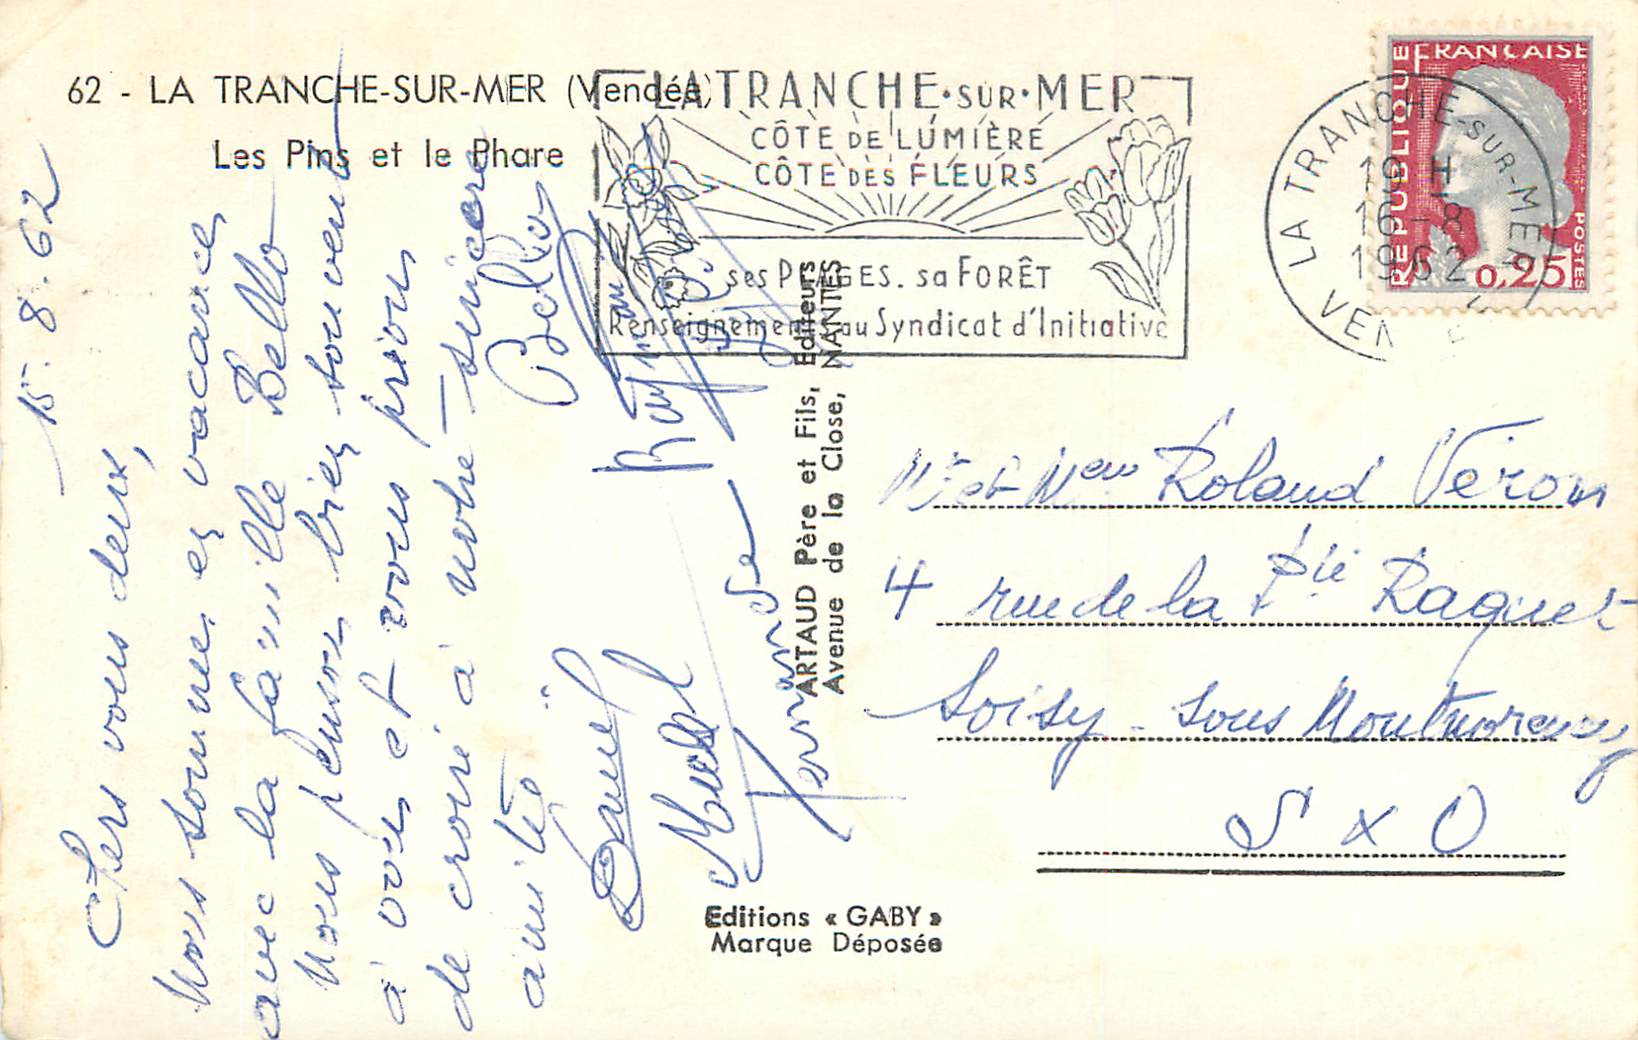 62 - LA TRANCHE-SUR-MER (Vendée)
Les Pins et le Phare
LA TRANCHE·SUR·MER
CÔTE DE LUMIÈRE
CÔTE DES FLEURS
ses PLAGES. sa FORÊT
Renseignements au Syndicat d'Initiative
RÉPUBLIQUE FRANCAISE
POSTES
0,25
LA TRANCHE-SUR-MER
19 H
16-8
1962
VENDEE
15.8.62
Chers vous deux,
Nous sommes en vacances
avec la famille Bello
Nous pensons bien souvent
à vous, et vous prions
de croire à notre sincère
amitié
Bello
Raymond
Daniel
Michel
Fernande
ARTAUD Père et Fils, Editeurs
Avenue de la Close, NANTES
Editions « GABY »
Marque Déposée
Mr et Mme Roland Veron
4 rue de la Pte Raquet
Soisy-sous Montmorency
S x O